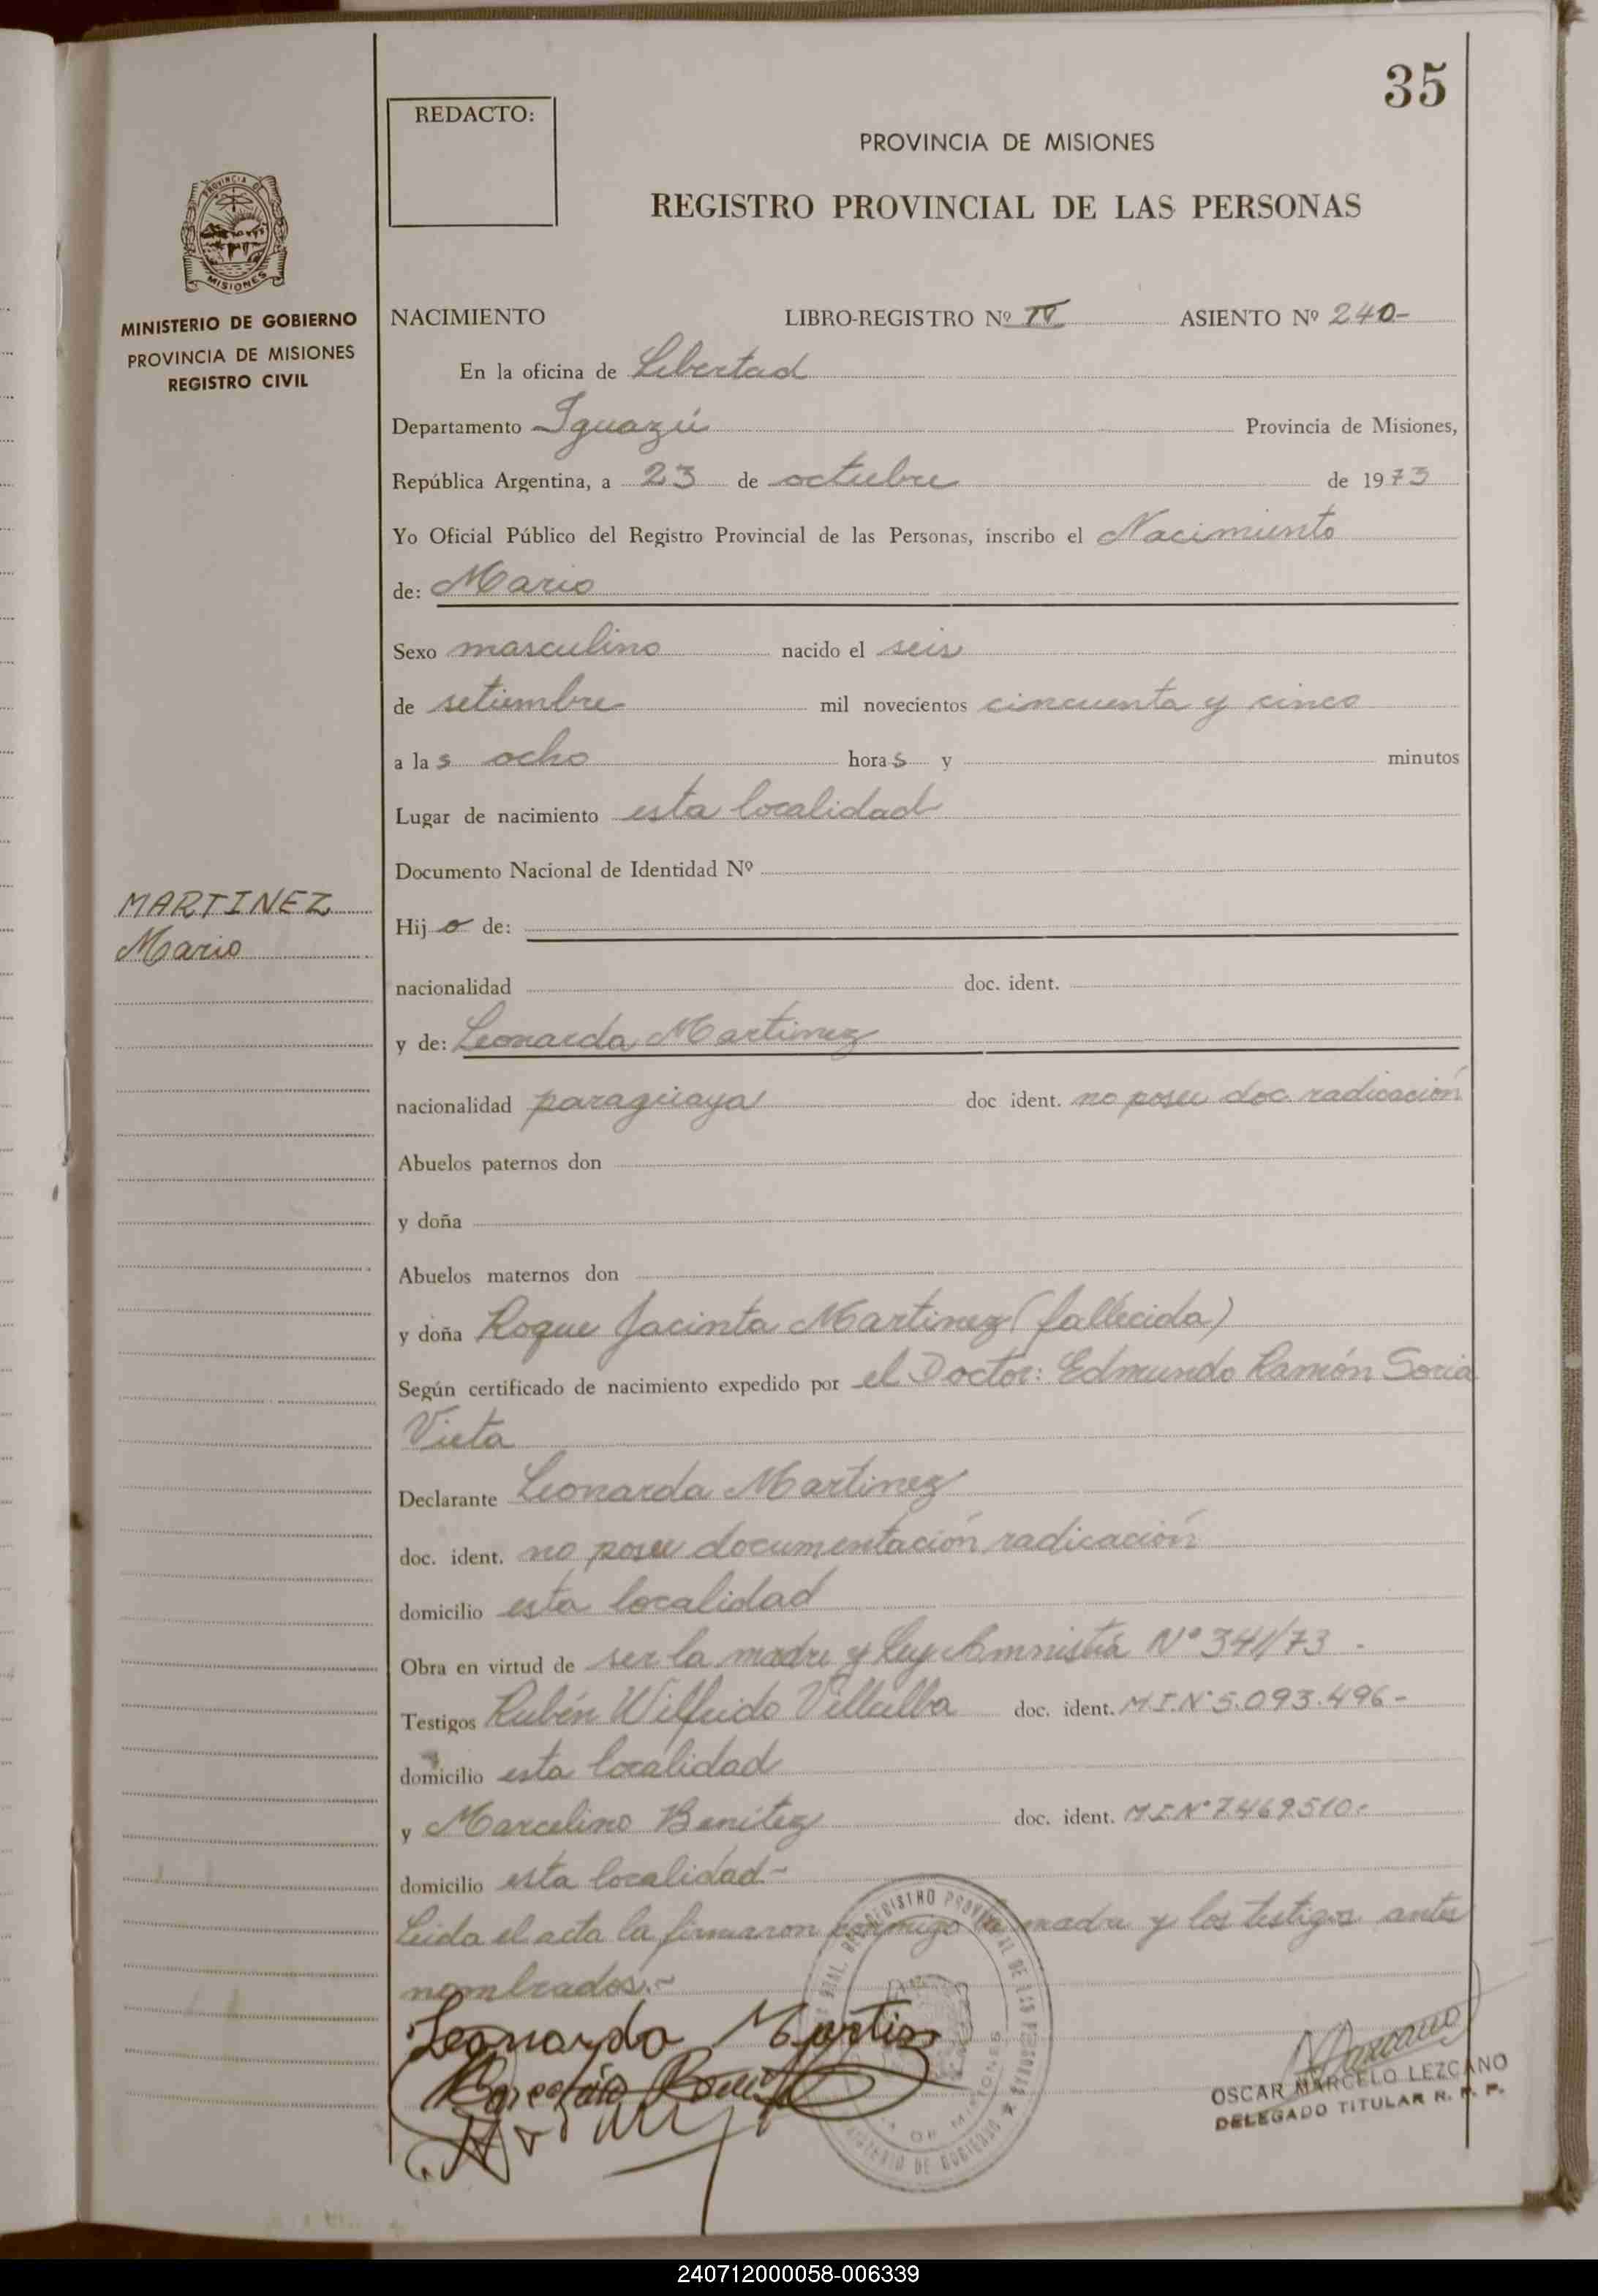 35
REDACTO:
PROVINCIA DE MISIONES
REGISTRO PROVINCIAL DE LAS PERSONAS
PROVINCIA DE
MISIONES
MINISTERIO DE GOBIERNO
PROVINCIA DE MISIONES
REGISTRO CIVIL
NACIMIENTO LIBRO-REGISTRO Nº IV ASIENTO Nº 240-
En la oficina de Libertad
Departamento Iguazú Provincia de Misiones,
República Argentina, a 23 de octubre de 1973
Yo Oficial Público del Registro Provincial de las Personas, inscribo el Nacimiento
de: Mario
Sexo masculino nacido el seis
de setiembre mil novecientos cincuenta y cinco
a las ocho horas y minutos
Lugar de nacimiento esta localidad
Documento Nacional de Identidad Nº
MARTINEZ
Mario
Hijo de:
nacionalidad doc. ident.
y de: Leonarda Martinez
nacionalidad paraguaya doc ident. no posee doc. radicación
Abuelos paternos don
y doña
Abuelos maternos don
y doña Roque Jacinta Martinez (fallecida)
Según certificado de nacimiento expedido por el Doctor: Edmundo Ramón Soria
Vieta
Declarante Leonarda Martinez
doc. ident. no posee documentación radicación
domicilio esta localidad
Obra en virtud de ser la madre y Ley Amnistía Nº 341/73 -
Testigos Rubén Wilfrido Villalba doc. ident. M.I.Nº 5.093.496-
domicilio esta localidad
y Marcelino Benítez doc. ident. M.I.Nº 7.469.510-
domicilio esta localidad-
Leida el acta la firmaron conmigo la madre y los testigos antes
nombrados.-
Leonarda Martinz
OSCAR MARCELO LEZCANO
DELEGADO TITULAR R. P. P.
240712000058-006339